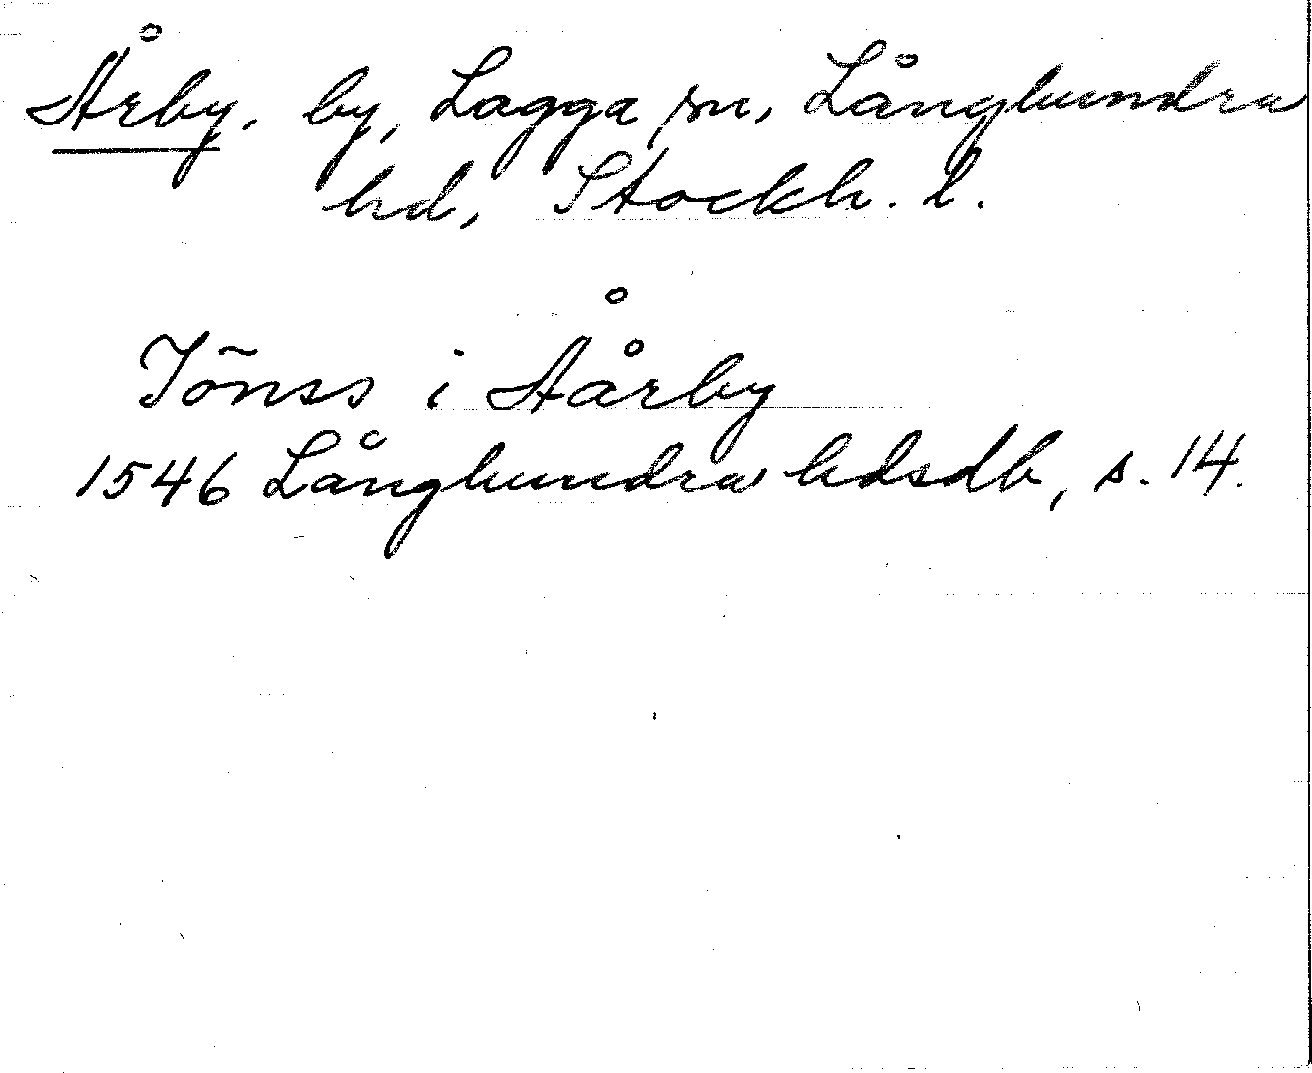 Årby. by, Lagga sn, Långhundra
hd, Stockh. l.
Jönss i Åårby
1546 Långhundra hdsdb, s. 14.